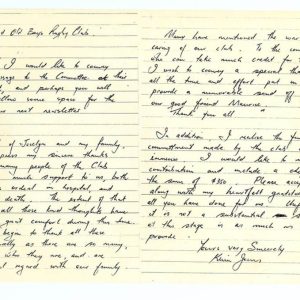 d Old Boys Rugby Club.
I would like to convey
to the Committee at their
and perhaps you will
allow some space for the
next newsletter
of Jocelyn and my family,
express my sincere thanks
many people of the Club
much support to us, both
ordeal in hospital, and
death. The extent of that
all those kind thoughts have
great comfort during this time.
began to thank all these
as there are so many,
who they are, and are
with our family.
Many have mentioned the war
caring of our club. To the com
who can take much credit for t
I wish to convey a special tha
all the time and effort put in
provide a memorable send off
our good friend
Thank you all "
In addition I realise the fina
commitment made by the club
someone I would like to m
contribution and include a ch
the sum of $350 Please acce
along with my heartfelt gratitud
all you have done for us.
it is not a substantial
at this stage is as much as
provide.
Yours Very Sincerely
Kevin